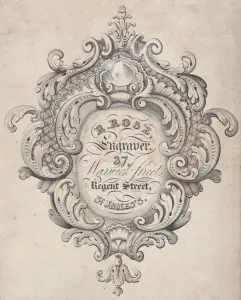 R. ROSE
Engraver.
37,
Warwick Street
Regent Street,
St. JAMES'S.